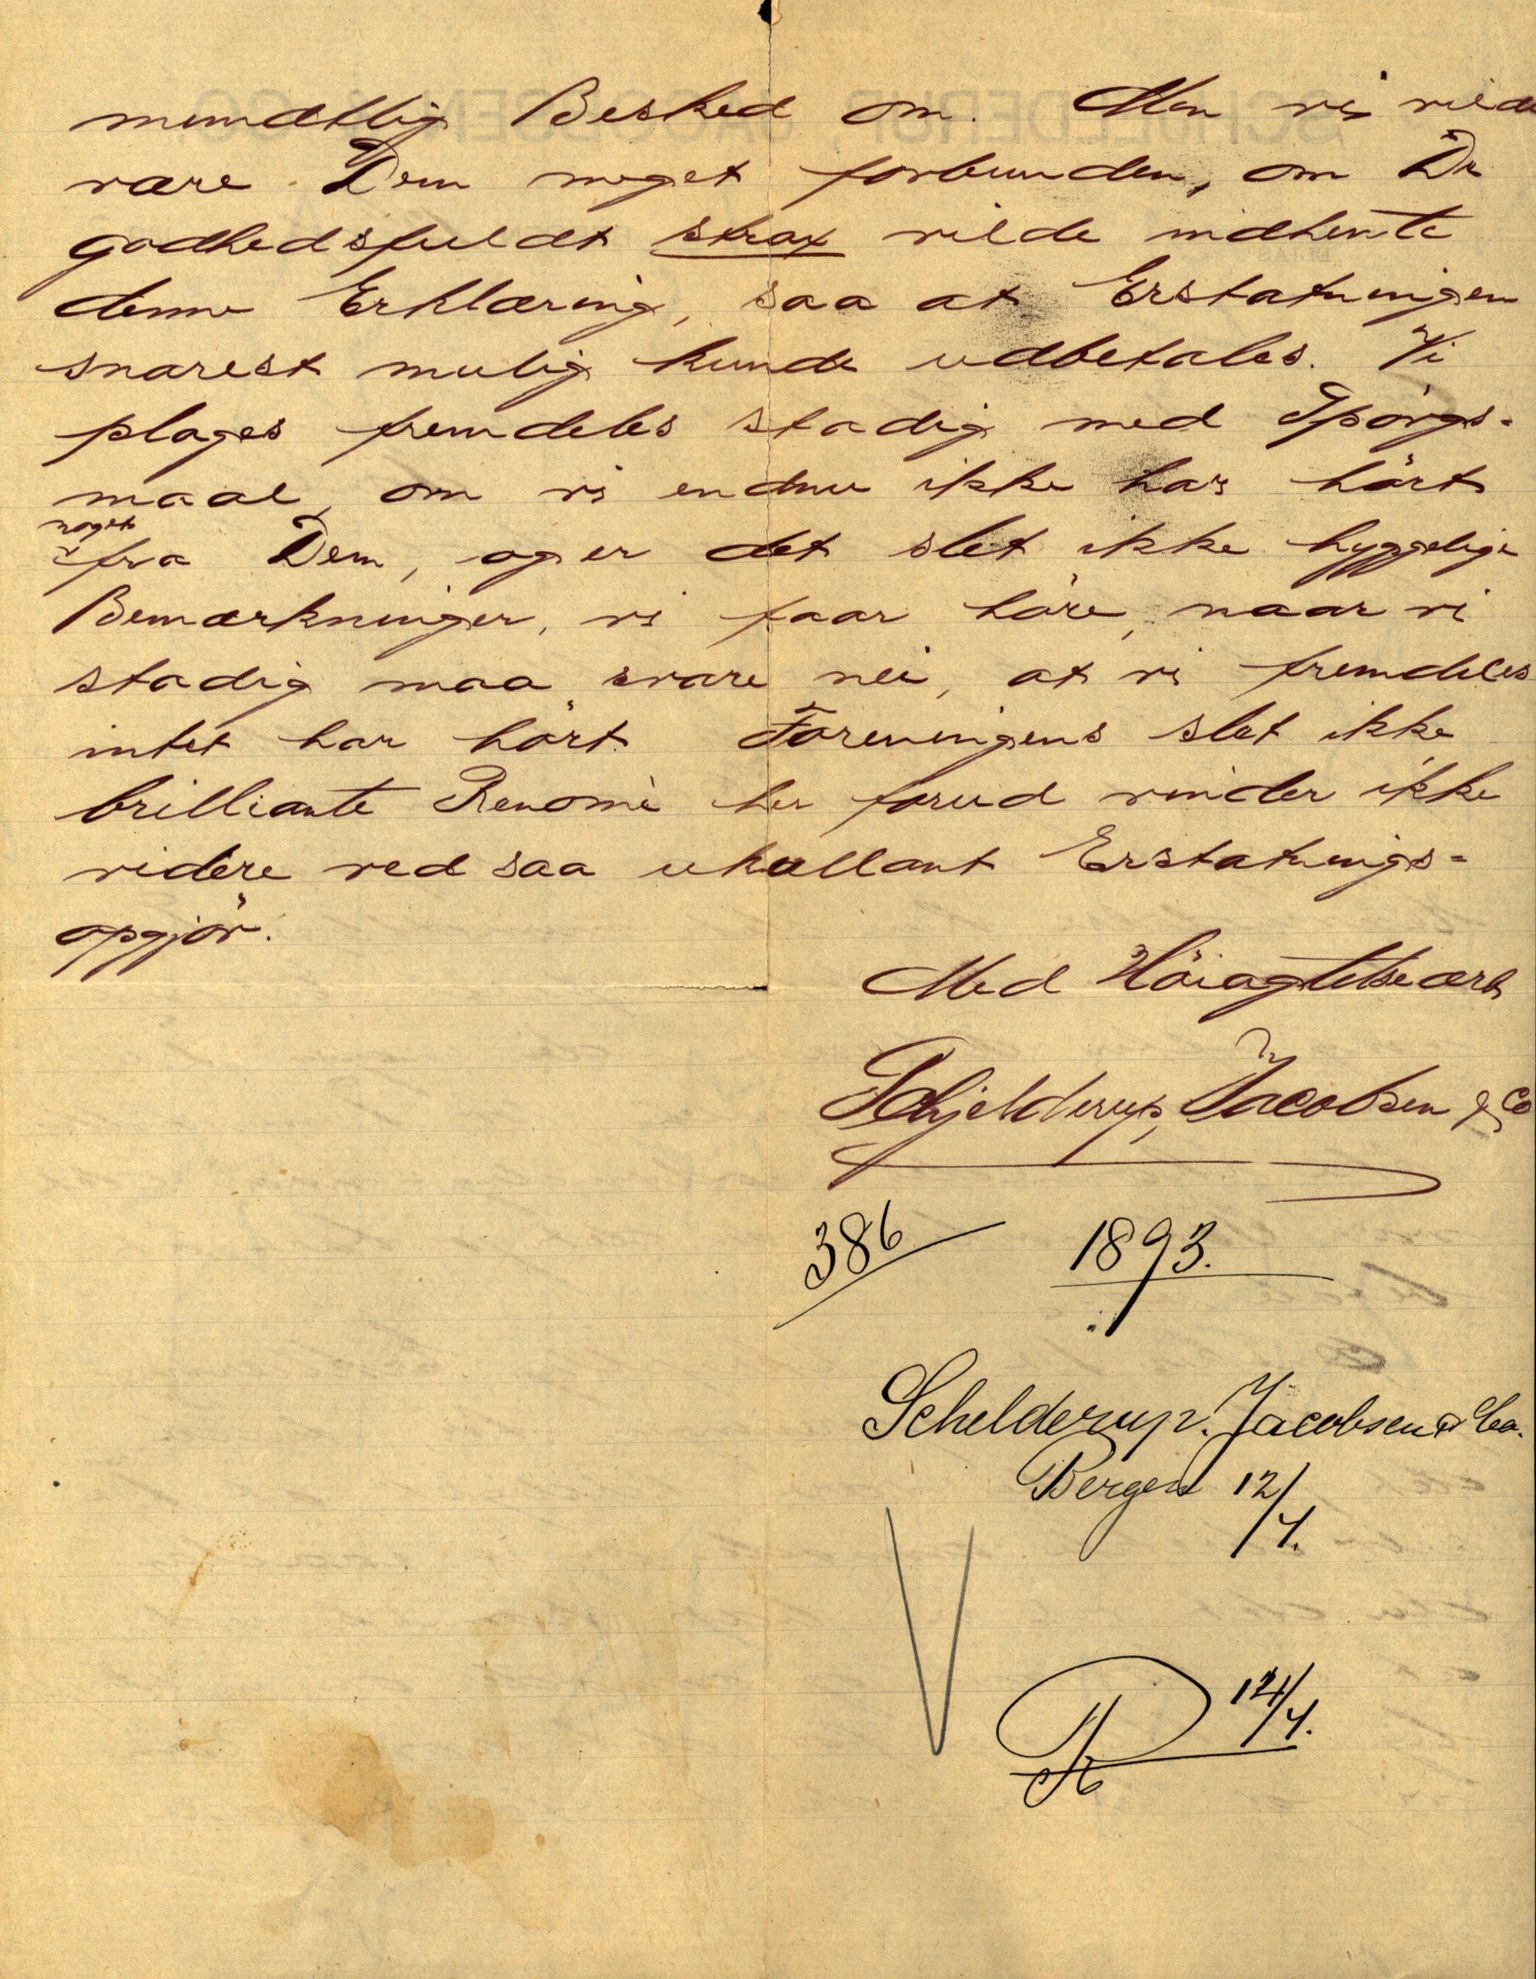 mundtlig Besked om. Men vi vilde
være Dem meget forbunden, om De
godhedsfuldt strax vilde indhente
denne Erklæring, saa at Erstatningen
snarest mulig kunde udbetales. Vi
plages fremdeles stadig med Spørgs=
maal, om vi endnu ikke har hört
noget
fra Dem, og er det slet ikke hyggelige
Bemærkninger, vi faar höre, naar vi
stadig maa svare nei, at vi fremdeles
intet har hört. Foreningens slet ikke
brilliante Renomè her forud vinder ikke
videre ved saa ukullant Erstatnings=
opgjör.
Med Höiagtelse ærb
Schjelderup, Jacobsen & Co
386 1893.
Schelderup. Jacobsen & Co.
Bergen 12/4.
12/4.